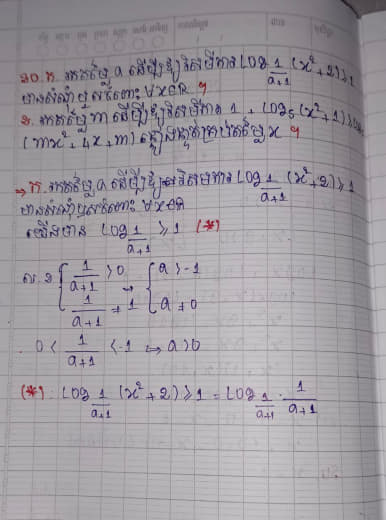 ១០. ក. រកតម្លៃ a ដើម្បីឱ្យវិសមីការ log_{1/(a+1)} (x²+2) ≥ 1
មានសំណុំឫសចំពោះ ∀x∈R ។
ខ. រកតម្លៃ m ដើម្បីឱ្យវិសមីការ 1 + log₅ (x²+1) ≥ log
(mx² + 4x + m) ផ្ទៀងផ្ទាត់គ្រប់តម្លៃ x ។
⇒ ក. រកតម្លៃ a ដើម្បីឱ្យវិសមីការ log_{1/(a+1)} (x²+2) ≥ 1
មានសំណុំឫសចំពោះ ∀x∈R
យើងមាន log_{1/(a+1)} ≥ 1 (*)
ល.ខ { 1/(a+1) > 0 → { a > -1
1/(a+1) ≠ 1 { a ≠ 0
. 0 < 1/(a+1) < -1 ⇒ a > 0
(*) : log_{1/(a+1)} (x²+2) ≥ 1 = log_{1/(a+1)} · 1/(a+1)